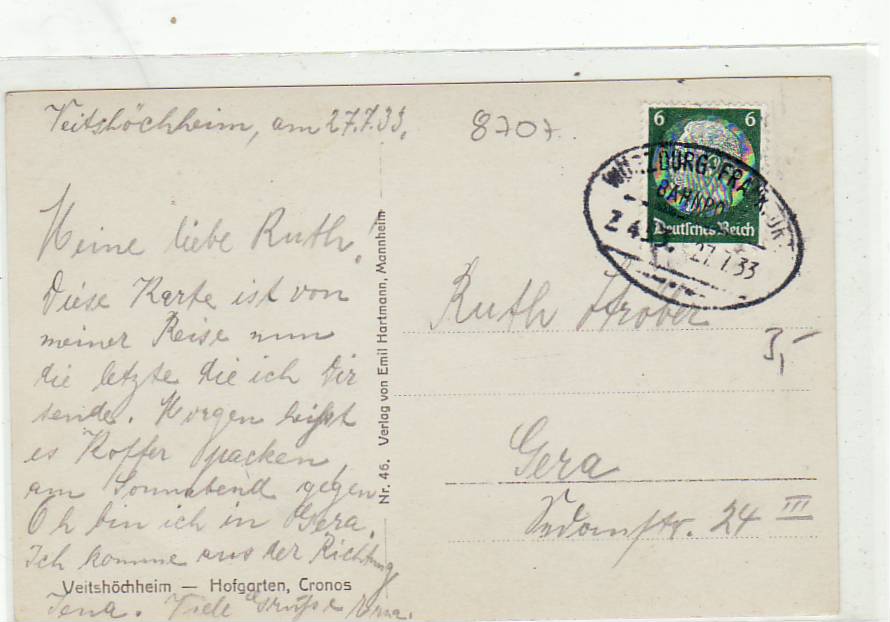 Veitshöchheim, am 27.7.33.
8707
Meine liebe Ruth!
Diese Karte ist von
meiner Reise nun
die letzte die ich Dir
sende. Morgen heißt
es Koffer packen
am Sonnabend gegen
Uh bin ich in Gera.
Ich komme aus der Richtung
Jena. Viele Grüße
Veitshöchheim — Hofgarten, Cronos
Nr. 46. Verlag von Emil Hartmann, Mannheim
6 6
Deutsches Reich
WÜRZBURG-FRANKFURT
BAHNPO
Z 4
27.7.33
Ruth Ströber
3,-
Gera
Sedanstr. 24 III